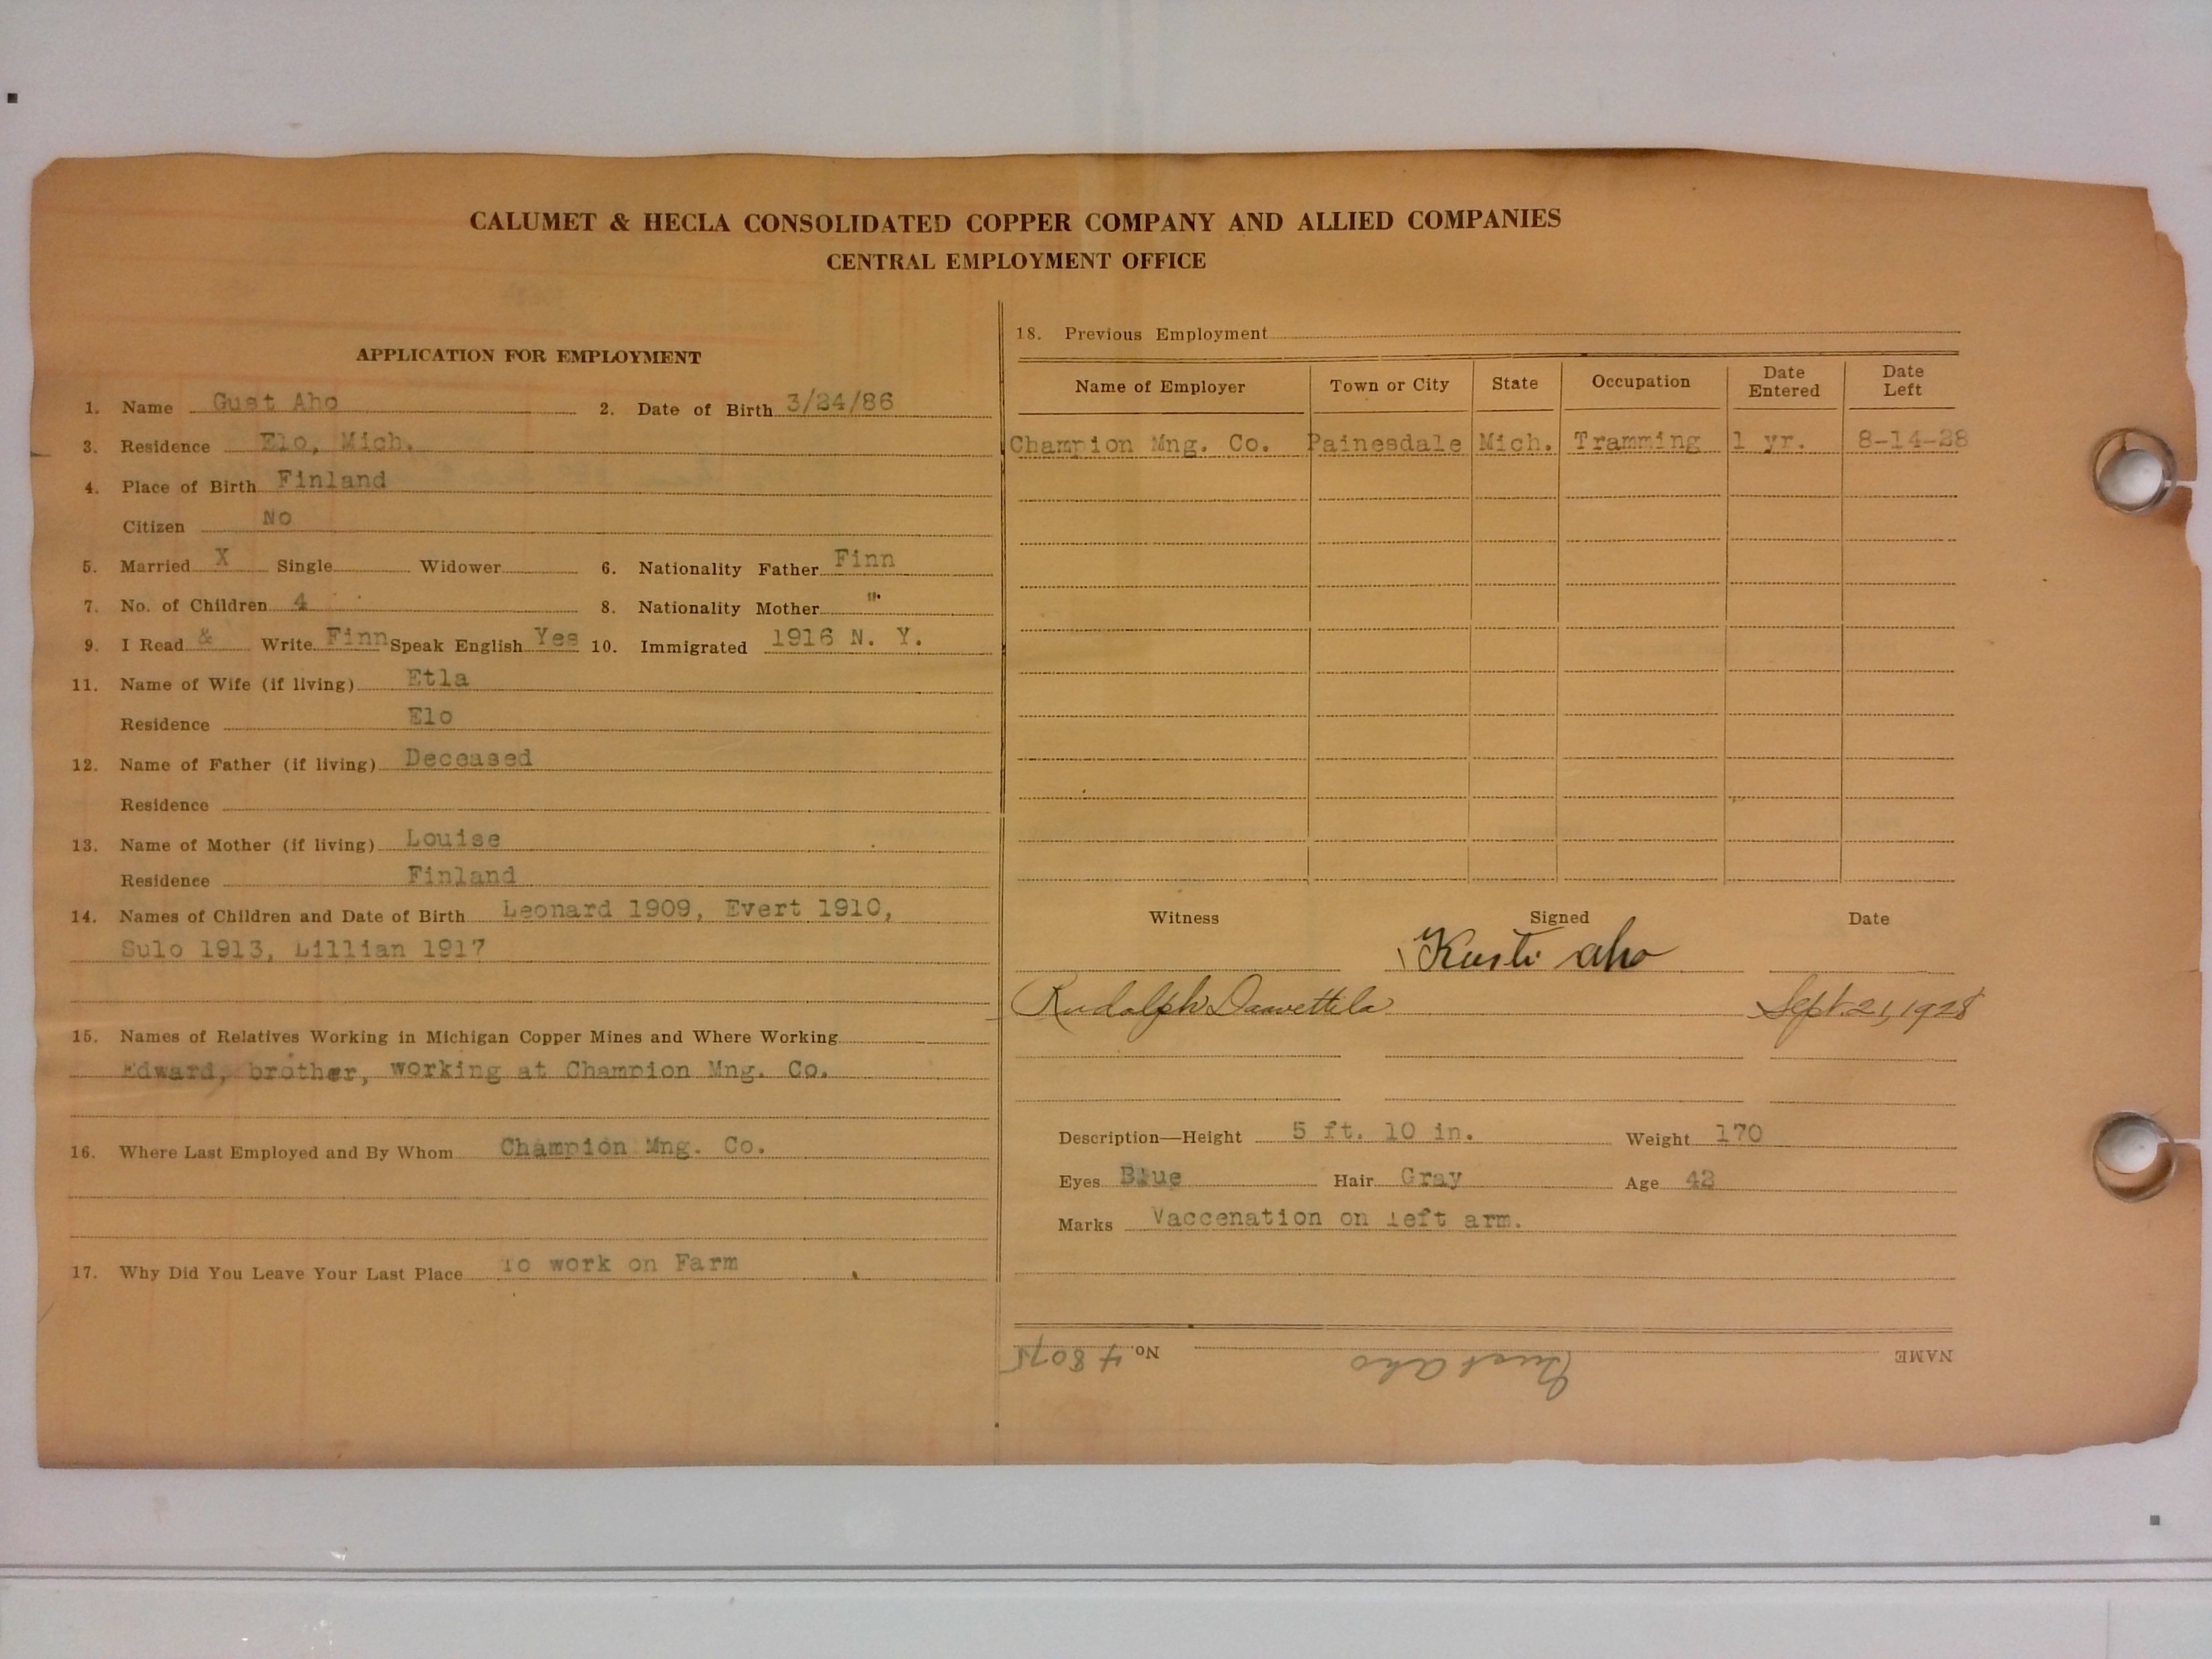 CALUMET & HECLA CONSOLIDATED COPPER COMPANY AND ALLIED COMPANIES
CENTRAL EMPLOYMENT OFFICE
APPLICATION FOR EMPLOYMENT
1. Name Gust Aho 2. Date of Birth 3/24/86
3. Residence Elo, Mich.
4. Place of Birth Finland
Citizen No
5. Married X Single Widower 6. Nationality Father Finn
7. No. of Children 4 8. Nationality Mother "
9. I Read & Write Finn Speak English Yes 10. Immigrated 1916 N. Y.
11. Name of Wife (if living) Etla
Residence Elo
12. Name of Father (if living) Deceased
Residence
13. Name of Mother (if living) Louise
Residence Finland
14. Names of Children and Date of Birth Leonard 1909, Evert 1910,
Sulo 1913, Lillian 1917
15. Names of Relatives Working in Michigan Copper Mines and Where Working
Edward, brother, working at Champion Mng. Co.
16. Where Last Employed and By Whom Champion Mng. Co.
17. Why Did You Leave Your Last Place To work on Farm
18. Previous Employment
Name of Employer Town or City State Occupation Date Entered Date Left
Champion Mng. Co. Painesdale Mich. Tramming 1 yr. 8-14-28
Witness Signed Date
Kusti Aho
Rudolph Sept. 21, 1928
Description—Height 5 ft. 10 in. Weight 170
Eyes Blue Hair Gray Age 42
Marks Vaccenation on left arm.
NAME Gust Aho No. 48075